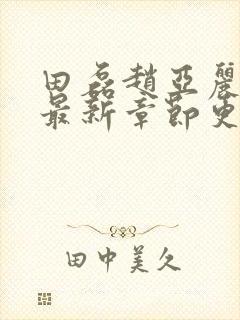 田磊趙亞麗
最新章節更
田中美久